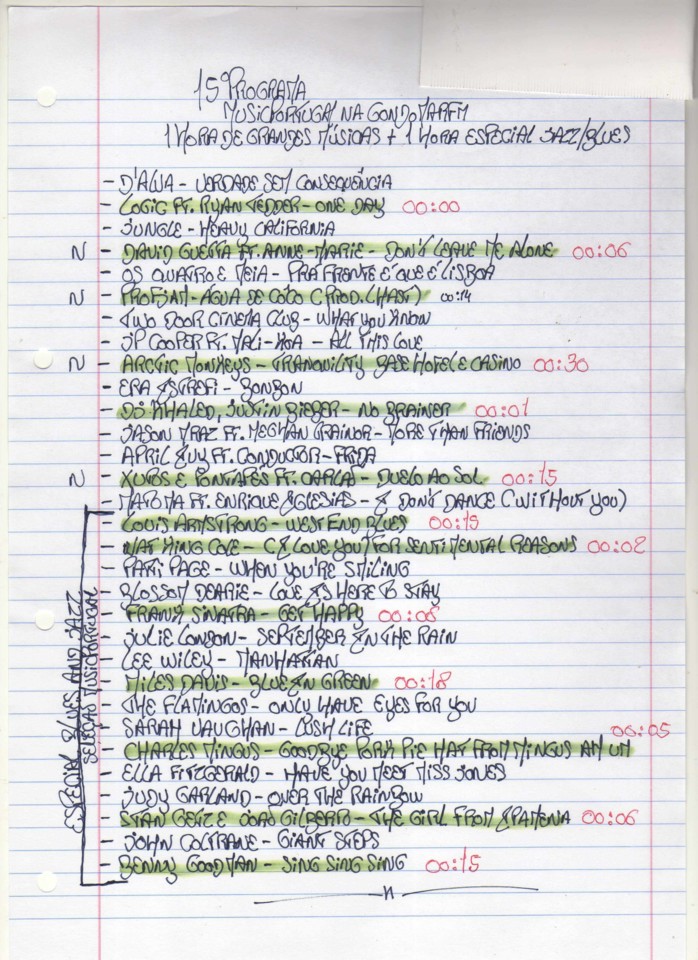 15º PROGRAMA
MUSICPORTUGAL NA GONDOMARFM
1 HORA DE GRANDES MÚSICAS + 1 HORA ESPECIAL JAZZ/BLUES
- D'ALVA - VERDADE SEM CONSEQUÊNCIA
- LOGIC FT. RYAN TEDDER - ONE DAY 00:00
- JUNGLE - HEAVY CALIFORNIA
N - DAVID GUETTA FT. ANNE-MARIE - DON'T LEAVE ME ALONE 00:06
- OS QUATRO E MEIA - PRA FRENTE É QUE É LISBOA
N - PROFJAM - ÁGUA DE CÔCO (PROD. LHAST) 00:14
- TWO DOOR CINEMA CLUB - WHAT YOU KNOW
- JP COOPER FT. MALI-KOA - ALL THIS LOVE
N - ARCTIC MONKEYS - TRANQUILITY BASE HOTEL E CASINO 00:30
- ERA ISTREFI - BONBON
- DJ KHALED, JUSTIN BIEBER - NO BRAINER 00:01
- JASON MRAZ FT. MEGHAN TRAINOR - MORE THAN FRIENDS
- APRIL IVY FT. CONDUCTOR - FRIDA
N - XUTOS E PONTAPÉS FT. CARLÃO - DUELO AO SOL 00:15
- MATOMA FT. ENRIQUE IGLESIAS - I DON'T DANCE (WITHOUT YOU)
ESPECIAL BLUES AND JAZZ
SELEÇÃO MUSICPORTUGAL
- LOUIS ARMSTRONG - WEST END BLUES 00:15
- NAT KING COLE - (I LOVE YOU) FOR SENTIMENTAL REASONS 00:02
- PATTI PAGE - WHEN YOU'RE SMILING
- BLOSSOM DEARIE - LOVE IS HERE TO STAY
- FRANK SINATRA - GET HAPPY 00:08
- JULIE LONDON - SEPTEMBER IN THE RAIN
- LEE WILEY - MANHATTAN
- MILES DAVIS - BLUE IN GREEN 00:18
- THE FLAMINGOS - ONLY HAVE EYES FOR YOU
- SARAH VAUGHAN - LUSH LIFE
- CHARLES MINGUS - GOODBYE PORK PIE HAT FROM MINGUS AH UM 00:05
- ELLA FITZGERALD - HAVE YOU MEET MISS JONES
- JUDY GARLAND - OVER THE RAINBOW
- STAN GETZ E JOÃO GILBERTO - THE GIRL FROM IPANEMA 00:06
- JOHN COLTRANE - GIANT STEPS
- BENNY GOODMAN - SING SING SING 00:15